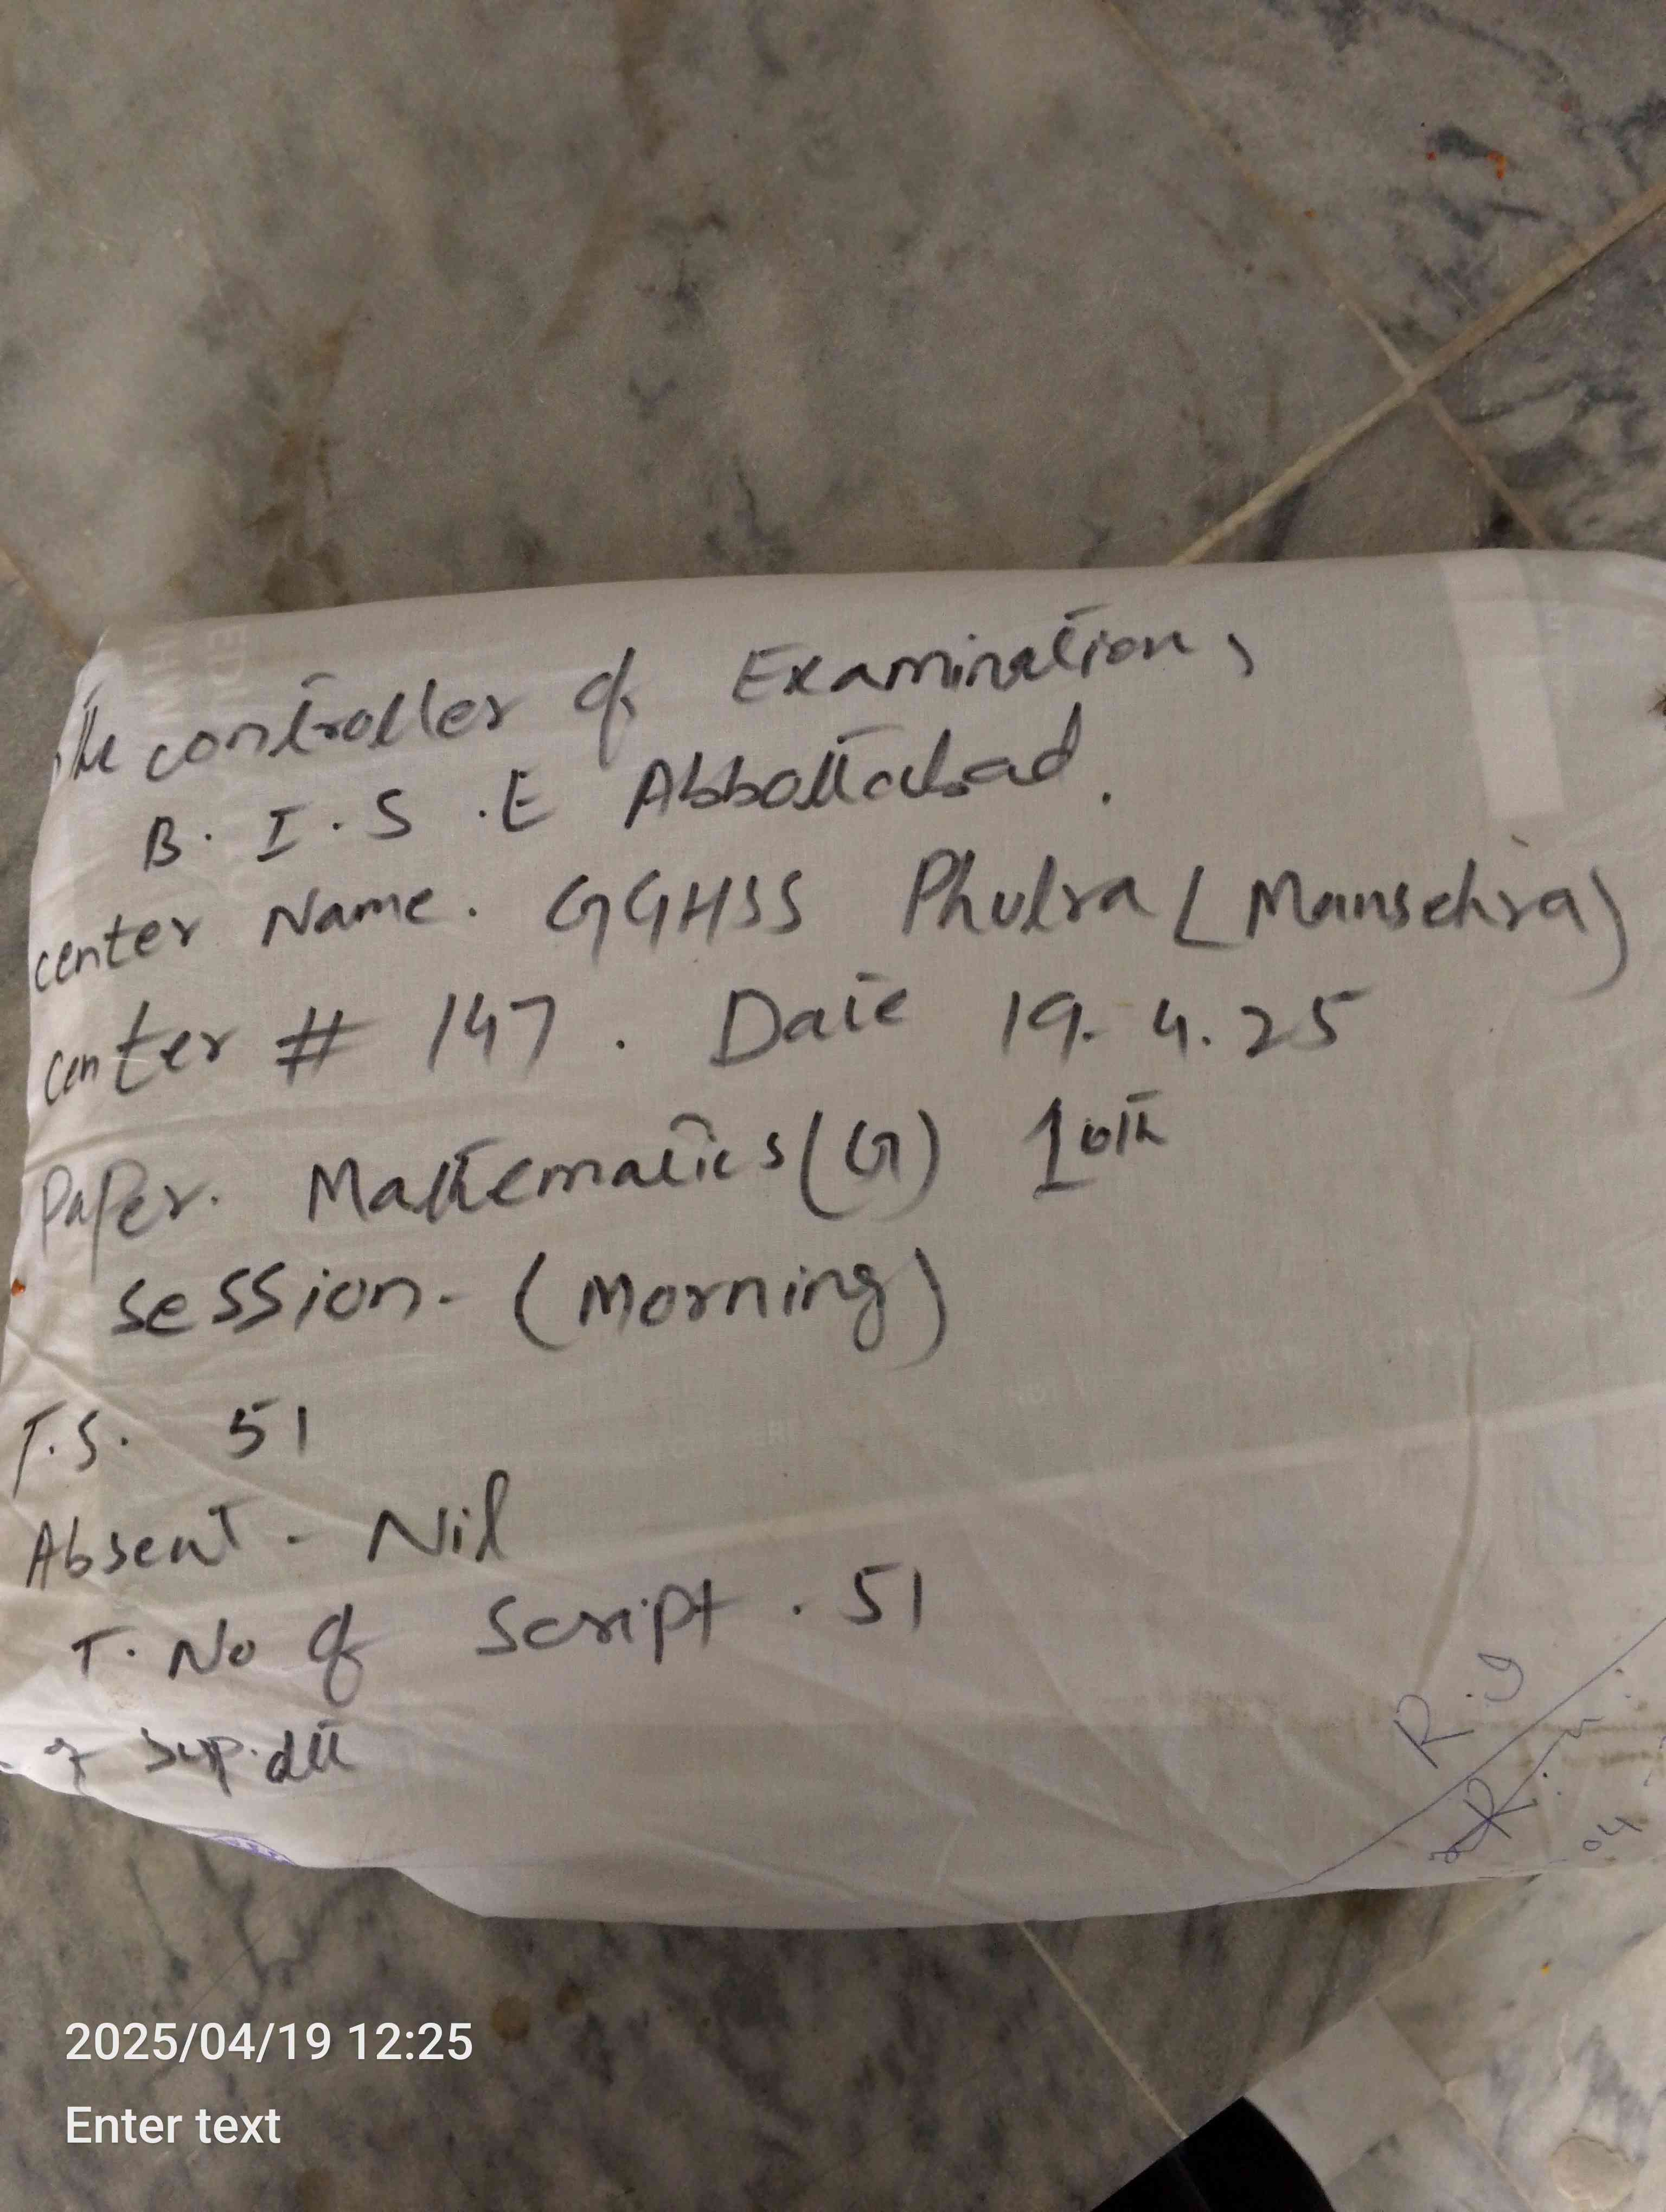 The controller of Examination,
B. I. S. E Abbottabad.
center Name. GGHSS Phulra (Mansehra)
center # 147. Date 19.4.25
Paper. Mathematics (G) 10th
session - (Morning)
T.S. 51
Absent - Nil
T. No of Script. 51
of Sup.dtt
R.I
04
2025/04/19 12:25
Enter text